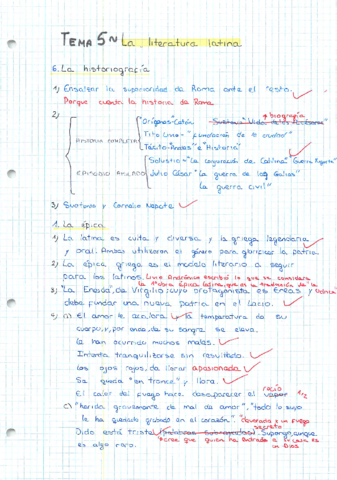 TEMA 5~ La literatura latina
6. La historiografía
1) Ensalzar la superioridad de Roma ante el resto.
Porque cuenta la historia de Roma
2)
biografía
"Orígenes" Catón Suetonio "Vida de los Césares"
Tito Livio "Fundación de la ciudad"
HISTORIA COMPLETA
Tácito "Anales" e "Historia"
Salustio "La conjuración de Catilina" Guerra Yugurta
EPISODIO AISLADO Julio César "La guerra de las Galias"
La guerra civil"
3) Suetonio y Cornelio Nepote.
1. La épica
1) La latina es culta y diversa y la griega legendaria
y oral. Ambas utilizaron el género para glorificar la patria.
2) La épica griega es el modelo literario a seguir
para los latinos. Livio Andrónico escribió lo que se considera
la 1ª obra épica latina, que es la traducción de la
3) "La Eneida" de Virgilio cuyo protagonista es Eneas y Odisea
debe fundar una nueva patria en el Lacio.
5) a) El amor le acalora y la temperatura de su
cuerpo, y, por ende, de su sangre se eleva.
Le han ocurrido muchos males.
Intenta tranquilizarse sin resultado.
Los ojos rojos, de llorar apasionada
Se queda "en trance" y llora.
El calor del fuego hace desaparecer el vapor rocío 1/2
c) "herida gravemente de mal de amor", "todo lo suyo
le ha quedado grabado en el corazón". "devorada x un fuego
secreto
Dido está triste. Supongo, aunque
es algo raro. *cree que quien ha entrado a su casa es
un Dios